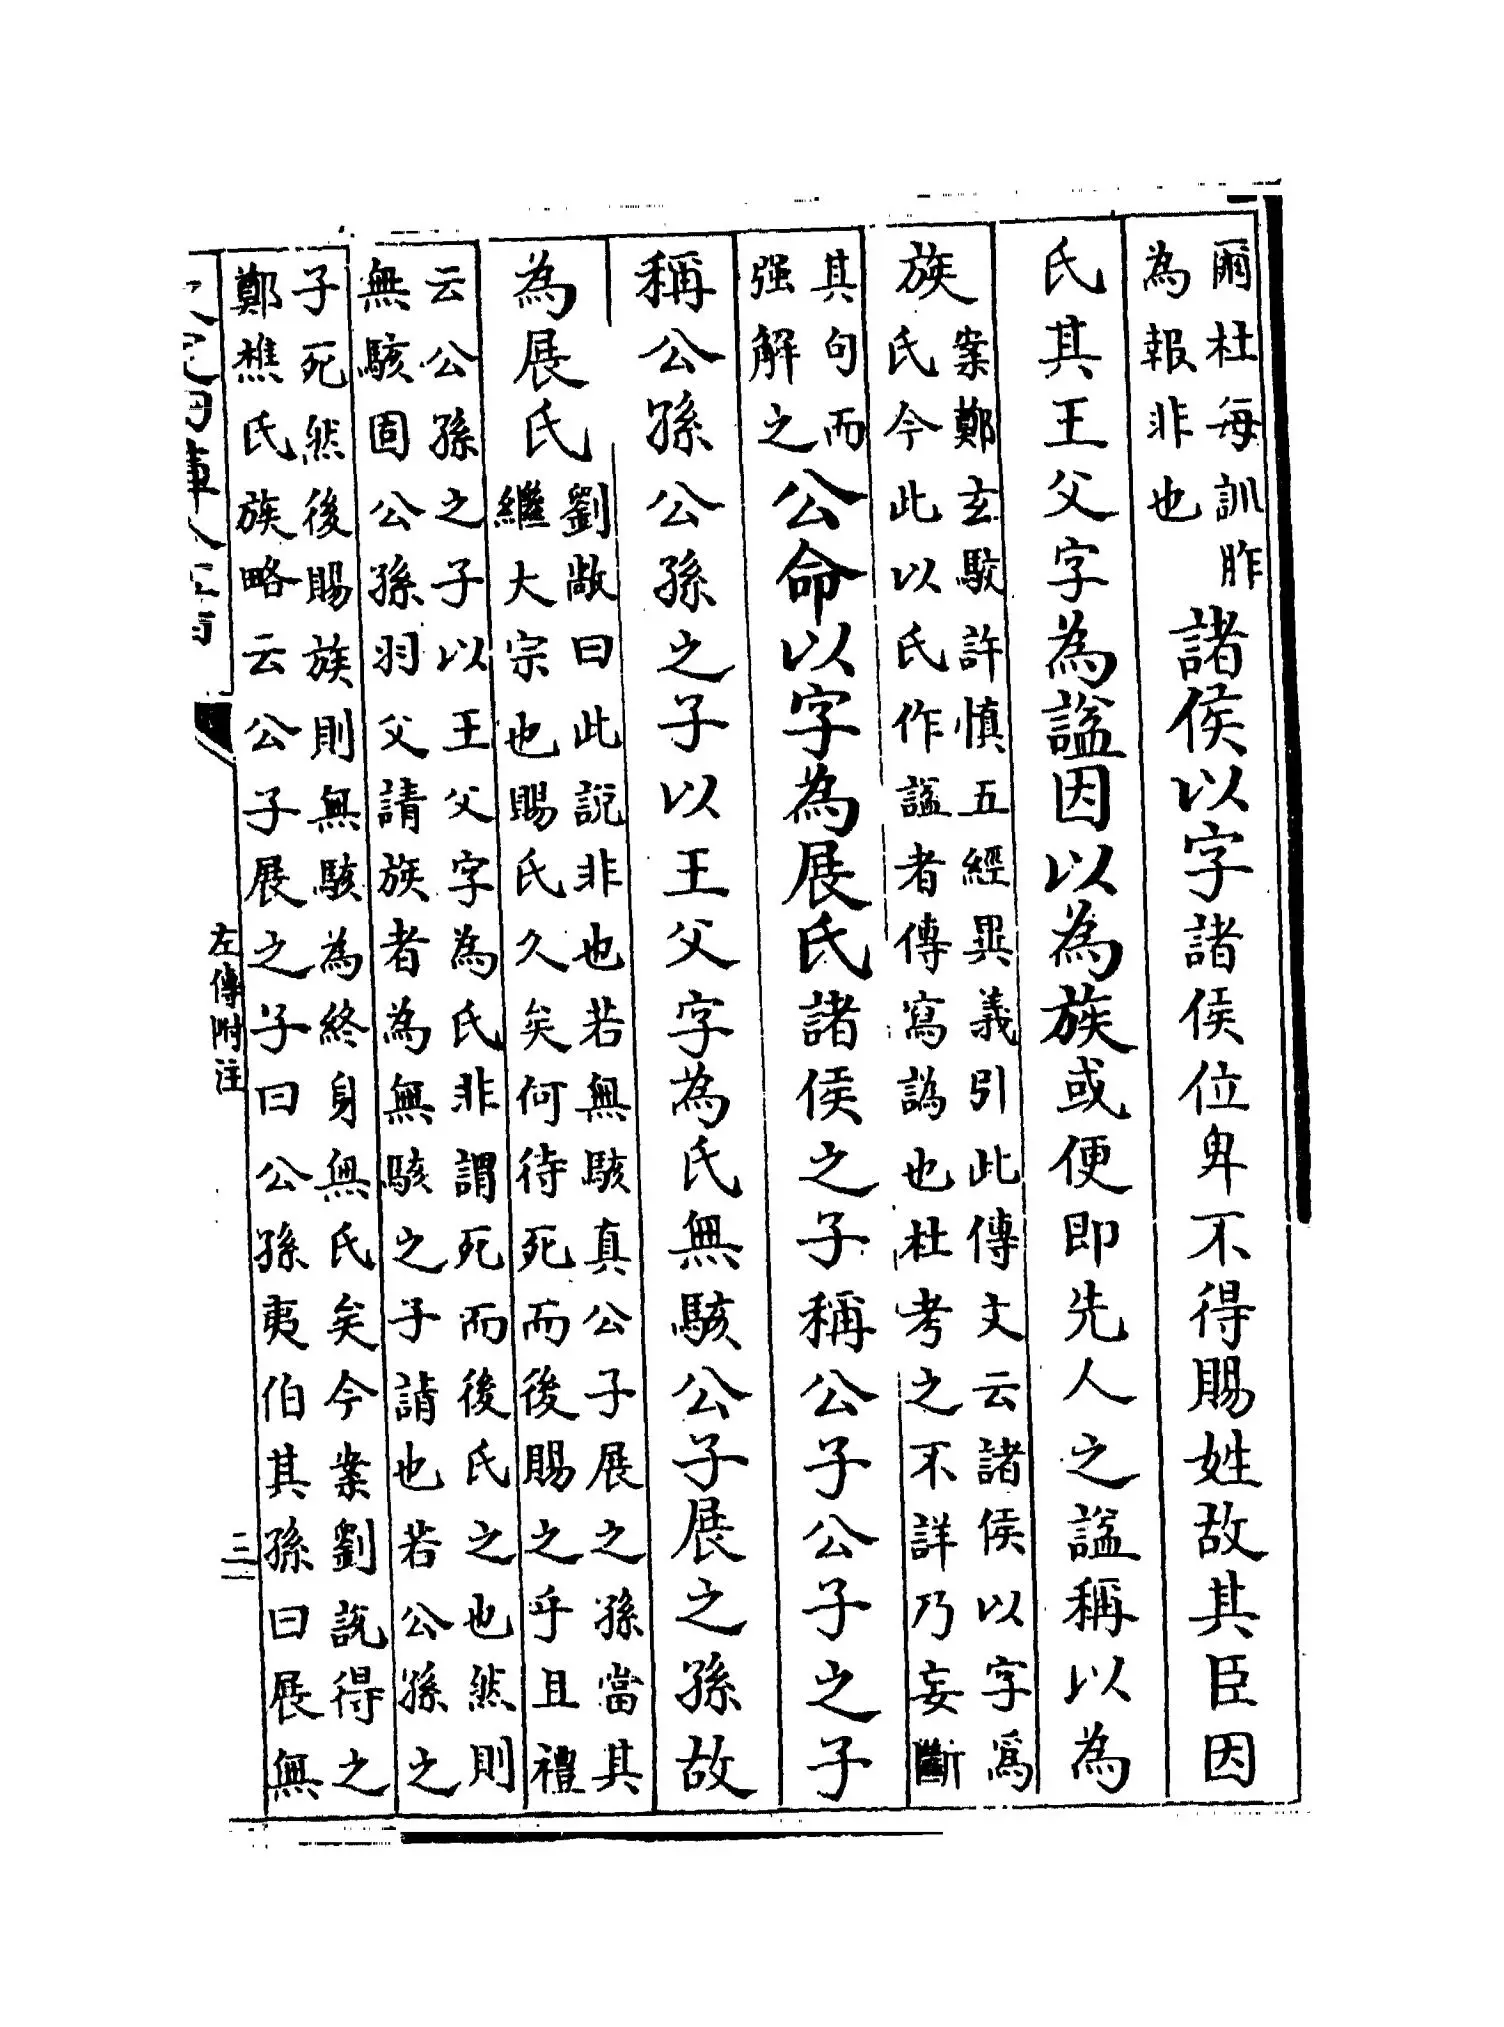 爾杜每訓胙
為報非也
諸侯以字諸侯位卑不得賜姓故其臣因
氏其王父字為諡因以為族或便即先人之諡稱以為
族
案鄭玄駁許慎五經異義引此傳文云諸侯以字爲
氏今此以氏作諡者傳寫譌也杜考之不詳乃妄斷
其句而
强解之
公命以字為展氏諸侯之子稱公子公子之子
稱公孫公孫之子以王父字為氏無駭公子展之孫故
為展氏
劉敞曰此說非也若無駭真公子展之孫當其
繼大宗也賜氏久矣何待死而後賜之乎且禮
云公孫之子以王父字為氏非謂死而後氏之也然則
無駭固公孫羽父請族者為無駭之子請也若公孫之
子死然後賜族則無駭為終身無氏矣今案劉說得之
鄭樵氏族略云公子展之子曰公孫夷伯其孫曰展無
左傳附注
三